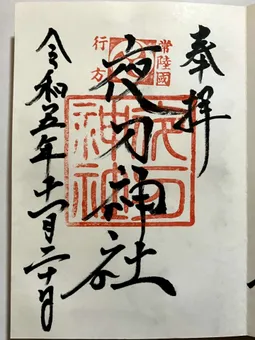 奉拝
常陸國
行方
夜刀神社
夜刀
神社
令和五年十一月二十日